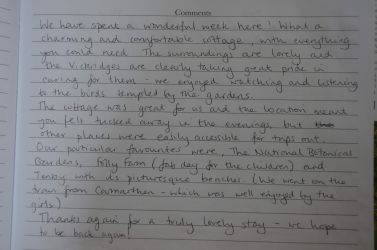 Comments
We have spent a wonderful week here! What a
charming and comfortable cottage, with everything
you could need. The surroundings are lovely and
the Vickridges are clearly taking great pride in
caring for them - we enjoyed watching and listening
to the birds tempted by the gardens.
The cottage was great for us and the location meant
you felt tucked away in the evenings, but
other places were easily accessible for trips out.
Our particular favourites were, The National Botanical
Gardens, Folly Farm (fab day for the children) and
Tenby with its picturesque beaches. (We went on the
train from Carmarthen - which was well enjoyed by the
girls)
Thanks again for a truly lovely stay - we hope
to be back again!